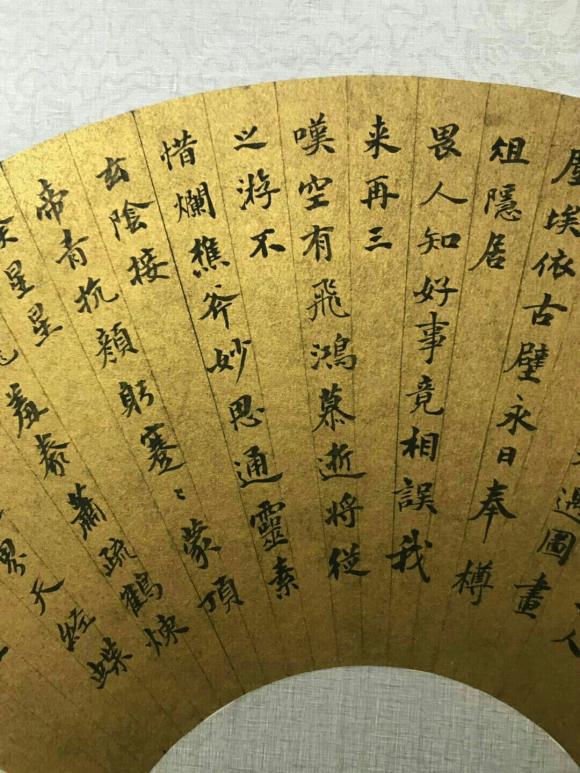 過圖畫
塵埃依古壁永日奉樽
俎隱居
畏人知好事竟相誤我
来再三
嘆空有飛鴻慕逝将從
之游不
惜爛樵斧妙思通靈素
玄陰接
帝青抗顔躬蹇〻蒙頂
星星
羞泰蕭疏鶴煉
界天經蝶